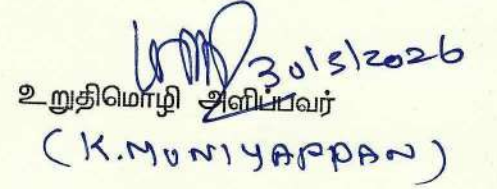 30/3/2026
உறுதிமொழி அளிப்பவர்
(K.MUNIYAPPAN)